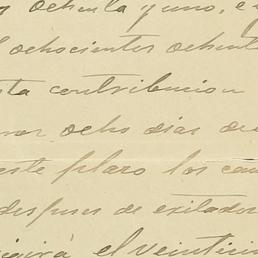 ochenta y uno, e
ochocientos ochent
sta contribucion
ocho dias de
este plazo los con
despues de
el veintici